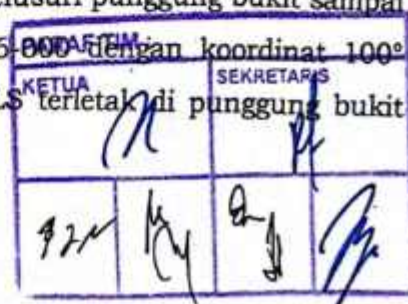 punggung bukit sampai
000 dengan koordinat 100°
PARAF TIM
KETUA
SEKRETARIS
terletak di punggung bukit